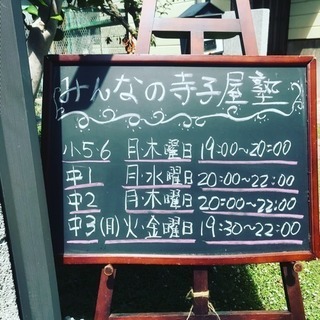 みんなの寺子屋塾
小5・6 月・木曜日 19:00~20:00
中1 月・水曜日 20:00~22:00
中2 月・木曜日 20:00~22:00
中3(月)火・金曜日 19:30~22:00